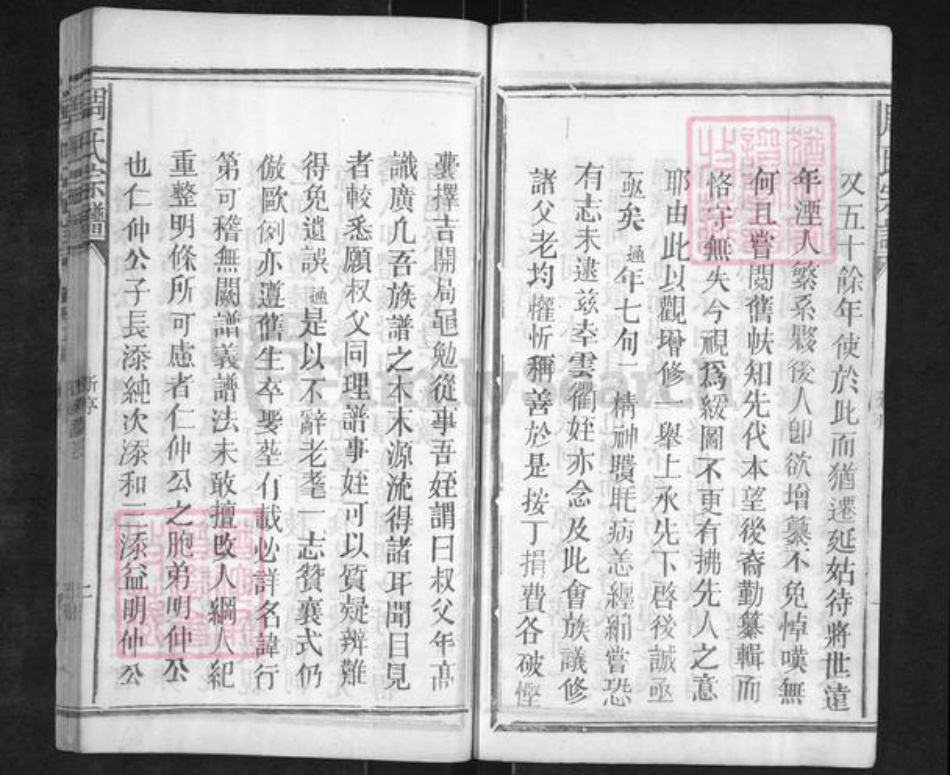 又五十餘年使於此而猶遷延姑待將世遠
年湮人繁系夥後人卽欲增纂不免悼嘆無
何且嘗閱舊帙知先代本望後裔勤纂輯而
恪守無失今視爲緩圖不更有拂先人之意
耶由此以觀增修一舉上承先下啓後誠亟
亟矣通年七旬一精神聵眊病恙纏綿嘗恐
有志未逮茲幸雲衢姪亦念及此會族議修
諸父老均懽忻稱善於是按丁捐費各破慳
囊擇吉開局黽勉從事吾姪謂曰叔父年高
識廣凡吾族譜之本木源流得諸耳聞目見
者較悉願叔父同理譜事姪可以質疑辨難
得免遺誤通是以不辭老耄一志贊襄式仍
倣歐例亦遵舊生卒娶塟有載必詳名諱行
第可稽無闕譜義譜法未敢擅改人綱人紀
重整明條所可慮者仁仲公之胞弟明仲公
也仁仲公子長添純次添和三添益明仲公
周氏宗譜
新序
二
Familysearch